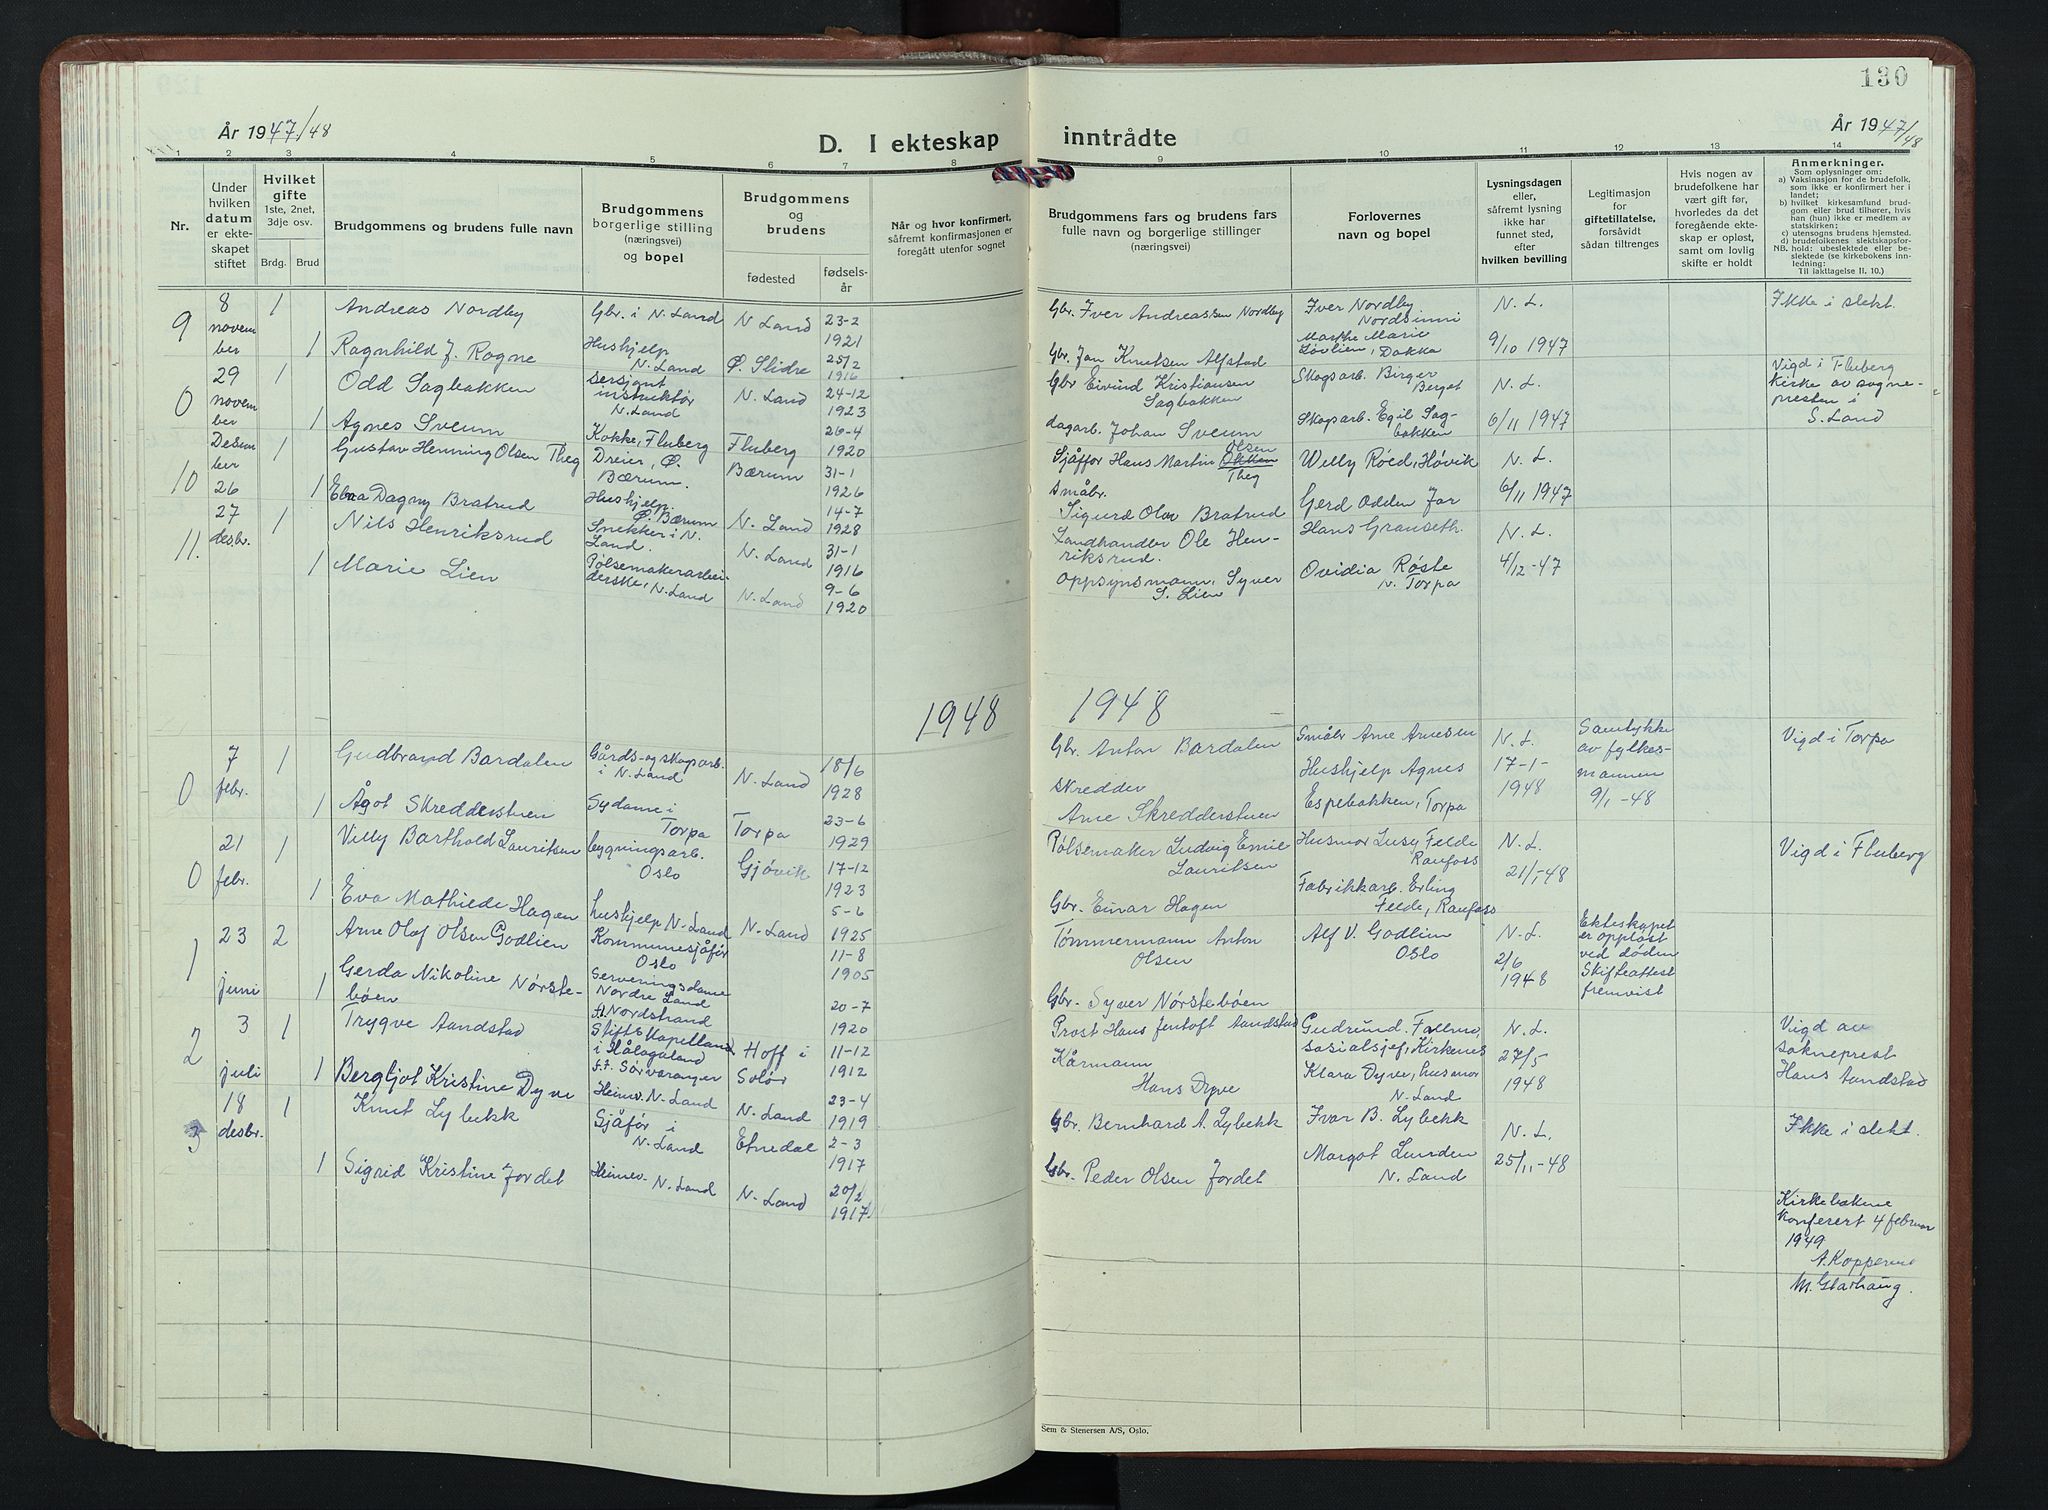 130
År 1947/48
D. I ekteskap
inntrådte
År 1947/48
1 2 3 4 5 6 7 8 9 10 11 12 13 14
Nr.
Under hvilken datum er ekteskapet stiftet
Hvilket gifte 1ste, 2net, 3dje osv.
Brdg. Brud
Brudgommens og brudens fulle navn
Brudgommens borgerlige stilling (næringsvei) og bopel
Brudgommens og brudens
fødested
fødselsår
Når og hvor konfirmert, såfremt konfirmasjonen er foregått utenfor sognet
Brudgommens fars og brudens fars fulle navn og borgerlige stillinger (næringsvei)
Forlovernes navn og bopel
Lysningsdagen eller, såfremt lysning ikke har funnet sted, efter hvilken bevilling
Legitimasjon for giftetillatelse, forsåvidt sådan tiltrenges
Hvis nogen av brudefolkene har vært gift før, hvorledes da det foregående ekteskap er opløst, samt om lovlig skifte er holdt
Anmerkninger.
Som oplysninger om:
a) Vaksinasjon for de brudefolk, som ikke er konfirmert her i landet;
b) hvilket kirkesamfund brudgom eller brud tilhører, hvis han (hun) ikke er medlem av statskirken;
c) utensogns brudens hjemsted.
d) brudefolkenes slektskapsforhold: ubeslektede eller beslektede (se kirkebokens innledning:
NB.
Til iakttagelse II. 10.)
9 8 november 1 Andreas Nordby Gbr. i N. Land N. Land 23-2 1921 Gbr. Iver Andreassen Nordby Iver Nordby Nordsinni N. L. Ikke i slekt.
1 Ragnhild J. Rogne Hushjelp N. Land Ø. Slidre 25/2 1916 Gbr. Jan Knutsen Alfstad Marthe Marie Løvlien, Dokka 9/10 1947
0 29 november 1 Odd Sagbakken Sersjant instruktør N. Land N. Land 24-12 1923 Gbr Eivind Kristiansen Sagbakken Skogsarb. Birger Berget N. L. Vigd i Fluberg kirke av sognepresten i S. Land
1 Agnes Sveum Kokke, Fluberg Fluberg 26-4 1920 dagarb. Johan Sveum Skogsarb. Egil Sagbakken 6/11 1947
10 Desember 26 1 Gustav Henning Olsen Theg Dreier, Ø. Bærum. Bærum 31-1 1926 Sjåffør Hans Martin Olsen Theg Willy Røed, Høvik N. L.
1 Ebba Dagny Bratrud Hushjelp. Ø. Bærum N. Land 14-7 1928 småbr. Sigurd Olav Bratrud Gerd Odden Jar 6/11 1947
11. 27 desbr. 1 Nils Henriksrud Snekker i N. Land. N. Land 31-1 1916 Landhandler Ole Henriksrud. Hans Granseth. N. L.
1 Marie Lien Pølsemakerarbeiderske, N. Land N. Land 9-6 1920 oppsynsmann, Syver S. Lien Ovidia Røste N. Torpa 4/12-47
1948
1948
0 7 febr. 1 Gudbrand Bardalen Gårds- og skogsarb. i N. Land N. Land 18/6 1928 Gbr. Anton Bardalen Småbr Arne Arnesen N. L. Samtykke av fylkesmannen 9/1-48 Vigd i Torpa
1 Ågot Skredderstuen Sydame i Torpa Torpa 23-6 1929 skredder Arne Skredderstuen Hushjelp Agnes Espebakken, Torpa 17-1-1948
0 21 febr. 1 Villy Barthold Lauritsen bygningsarb. Oslo Gjøvik 17-12 1923 Pølsemaker Ludvig Emil Lauritsen Husmor Lusy Felde Raufoss N. L. Vigd i Fluberg
1 Eva Mathilde Hagen hushjelp N. Land N. Land 5-6 1925 Gbr. Einar Hagen Fabrikkarb. Erling Felde, Raufoss 21/1-48
1 23 juni 2 Arne Olaf Olsen Godlien Kommunesjåfør Oslo 11-8 1905 Tømmermann Anton Olsen Alf V. Godlien Oslo N. L. 2/6 1948 Ekteskapet er oppløst ved døden Skifteattest fremvist
1 Gerda Nikoline Nørstebøen Serveringsdame Nordre Land f.t. Nordstrand 20-7 1920 Gbr. Syver Nørstebøen
2 3 juli 1 Trygve Aandstad Stiftskapelland i Hålogaland f.t. Sørvaranger Hoff i Solør 11-12 1912 Prost Hans Jentoft Aandstad sosialsjef, Kirkenes N. L. 27/5 1948 Vigd av sokneprest Hans Aandstad
1 Bergljot Kristine Dyve Heimev. N. Land N. Land 23-4 1919 Kårmann Hans Dyve Klara Dyve, husmor N. Land
3 18 desbr. 1 Knut Lybekk Sjåfør i N. Land Etnedal 2-3 1917 Gbr. Bernhard A. Lybekk Ivar B. Lybekk N. L. Ikke i slekt.
1 Sigrid Kristine Jordet Heimev. N. Land N. Land 20/2 1917 Gbr. Peder Olsen Jordet Margot Lunden N. Land 25/11-48
Kirkebøkene
konferert 4 februar
1949
Sem & Stenersen A/S, Oslo.